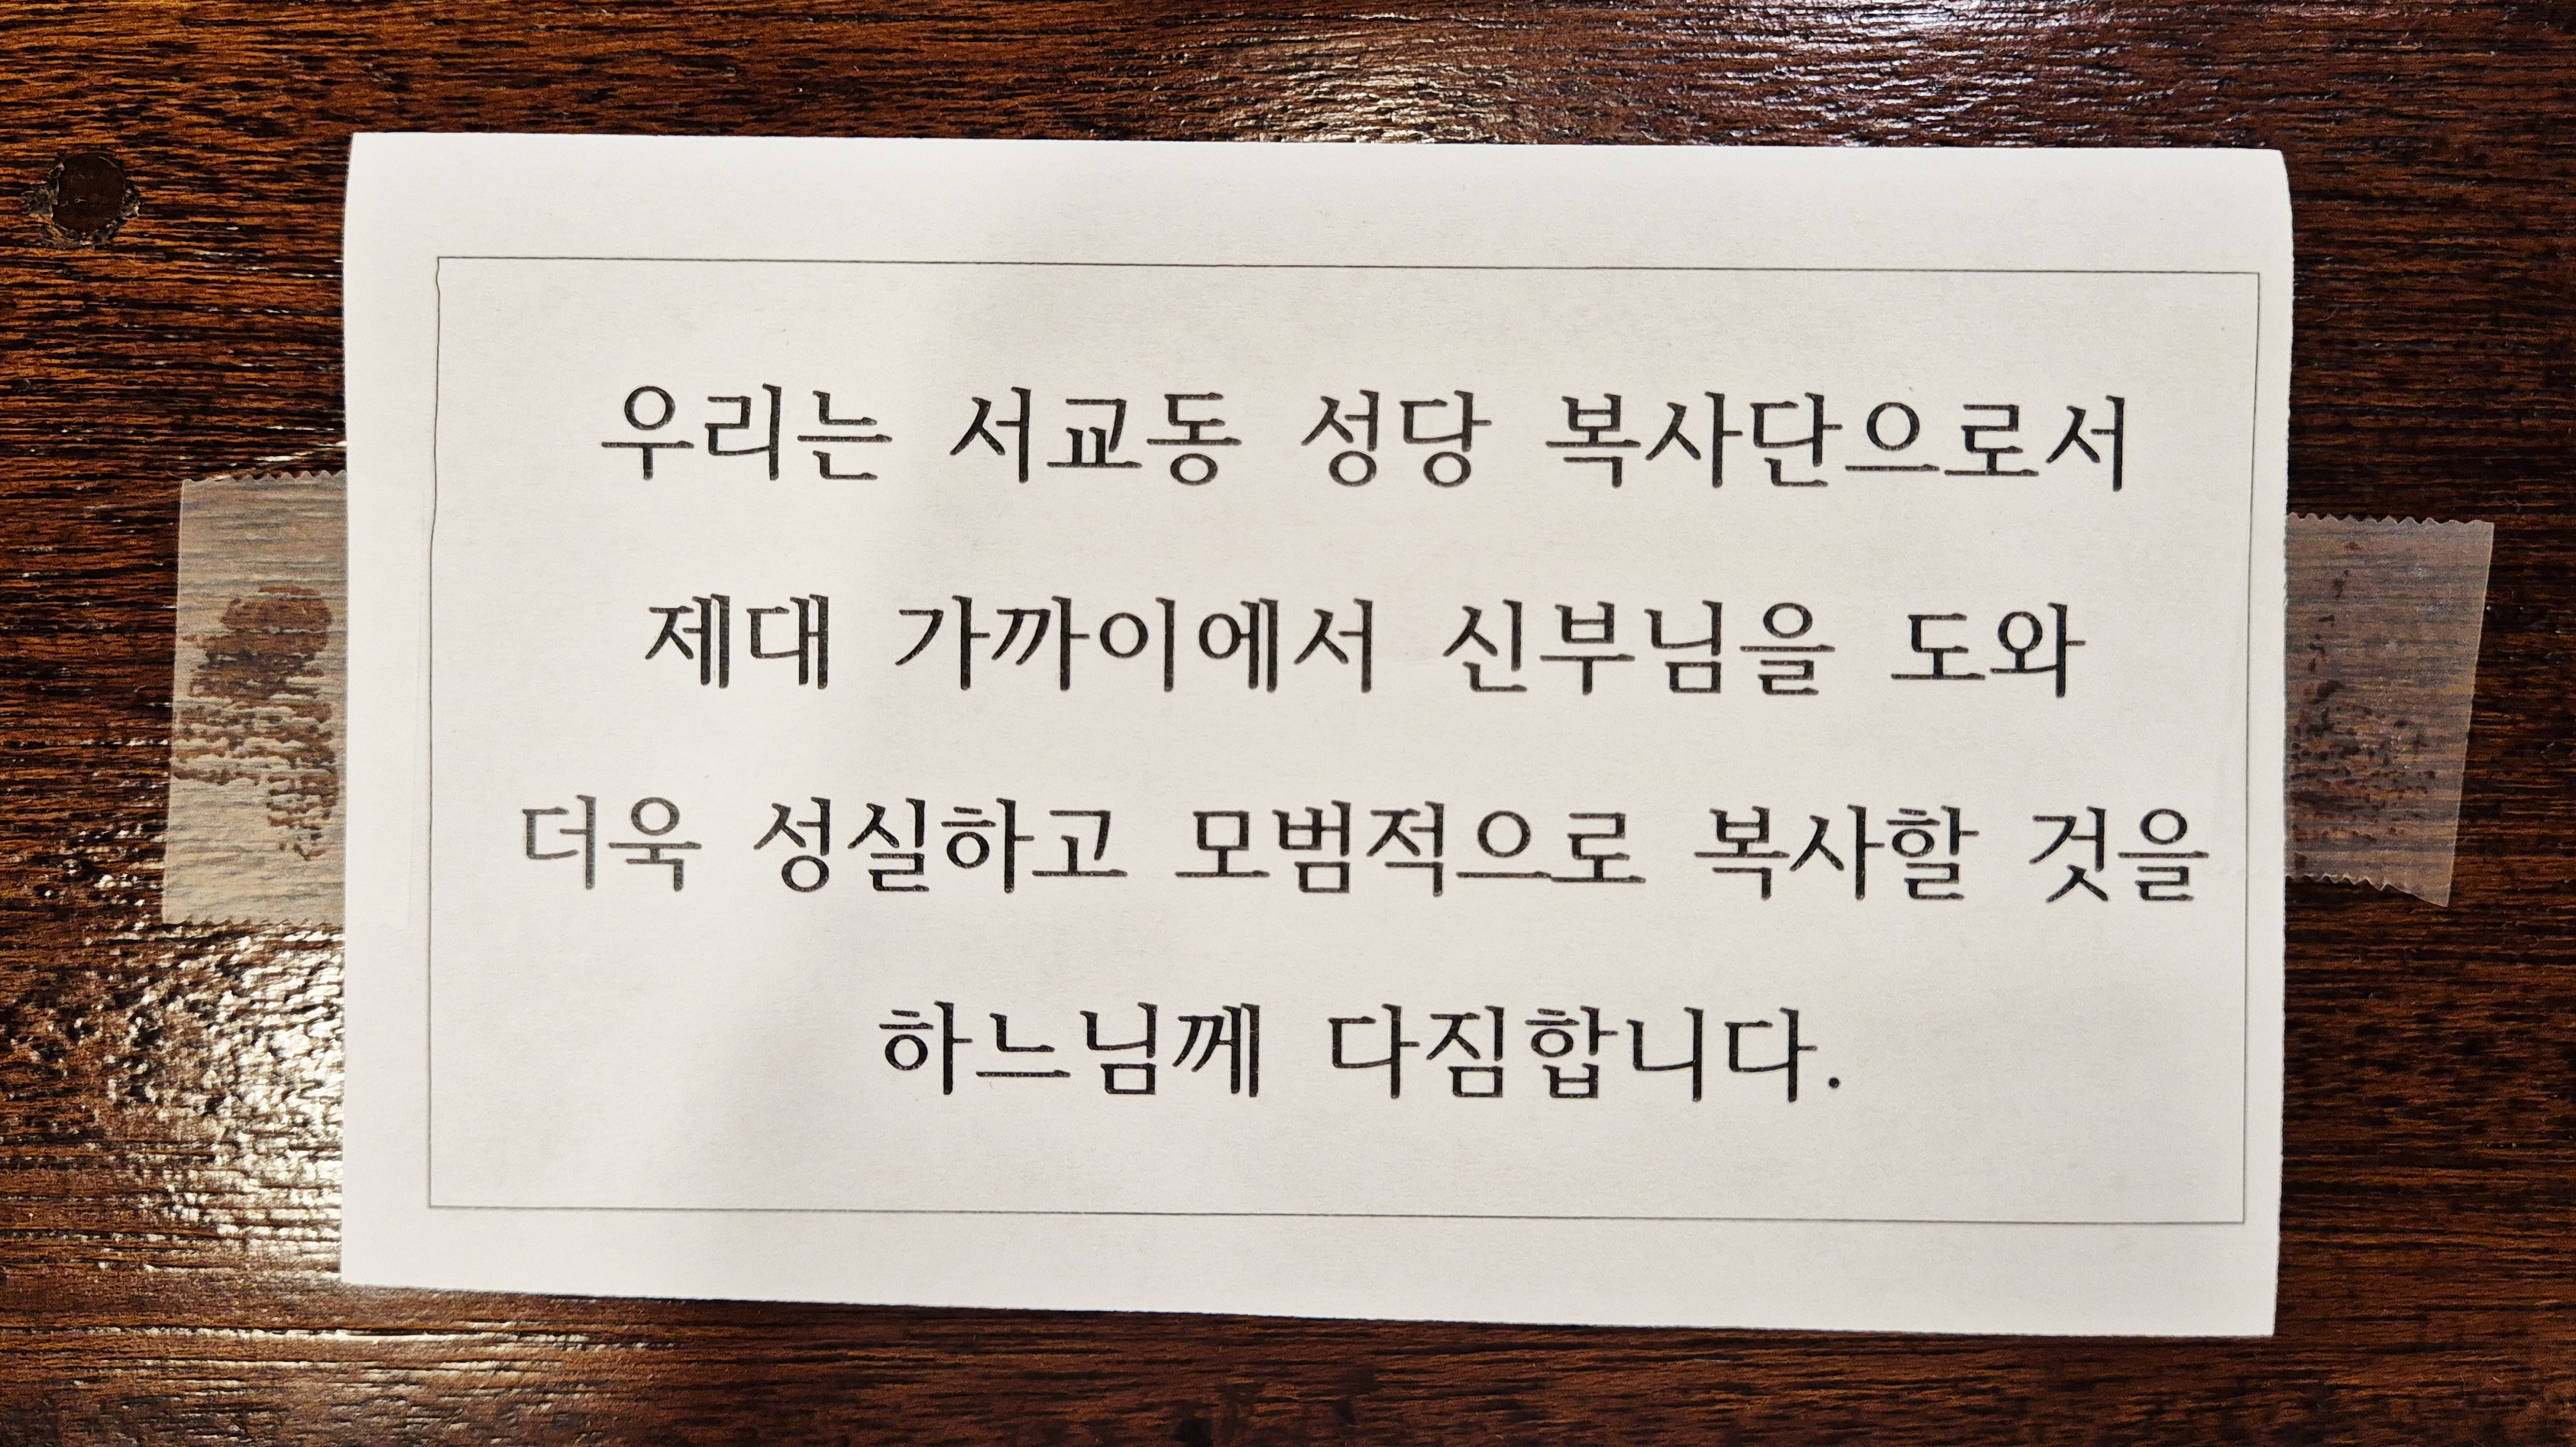 우리는 서교동 성당 복사단으로서
제대 가까이에서 신부님을 도와
더욱 성실하고 모범적으로 복사할 것을
하느님께 다짐합니다.